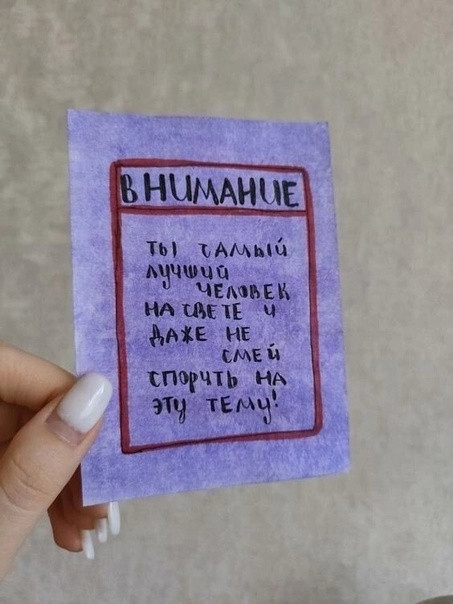 ВНИМАНИЕ
ТЫ САМЫЙ
ЛУЧШИЙ
ЧЕЛОВЕК
НА СВЕТЕ И
ДАЖЕ НЕ
СМЕЙ
СПОРИТЬ НА
ЭТУ ТЕМУ!